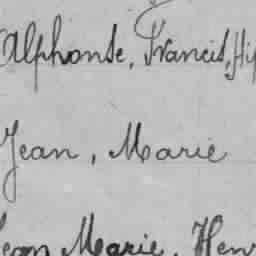 Alphonse, Francis, Hip
Jean, Marie
Jean Marie, Henr